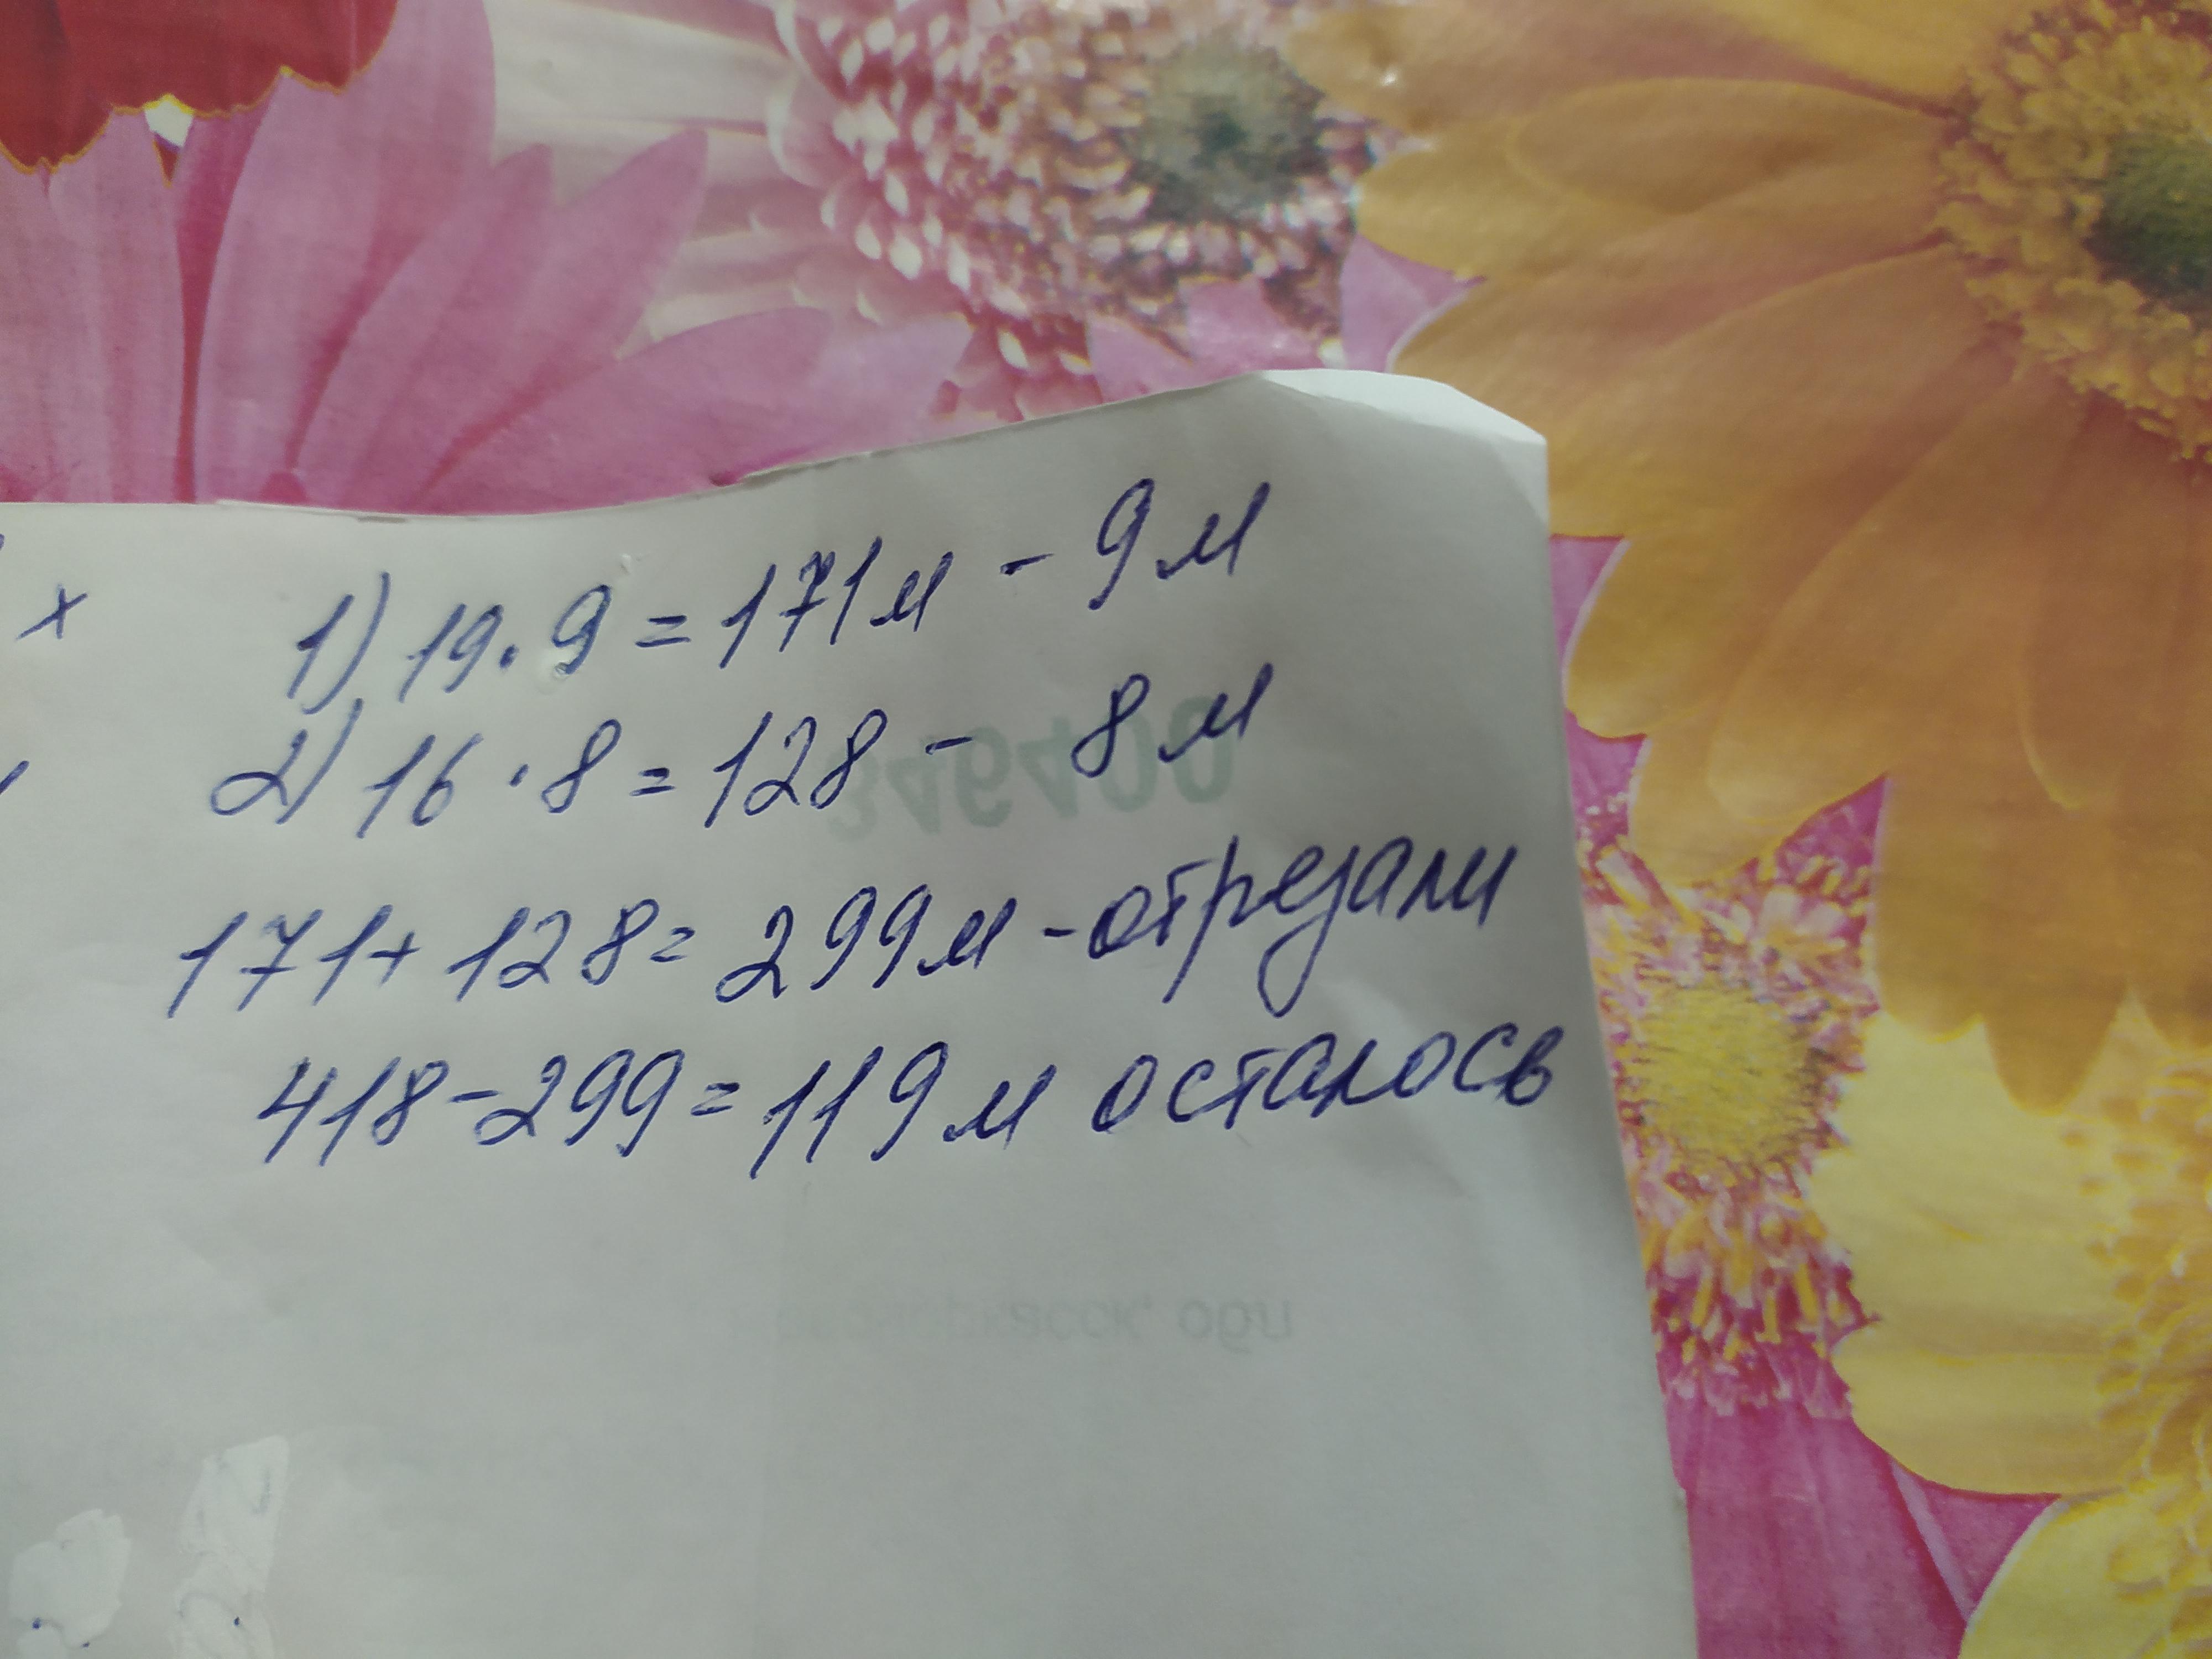 х
1) 19 · 9 = 171 м - 9 м
2) 16 · 8 = 128 - 8 м
171 + 128 = 299 м - отрезали
418 - 299 = 119 м осталось
346400